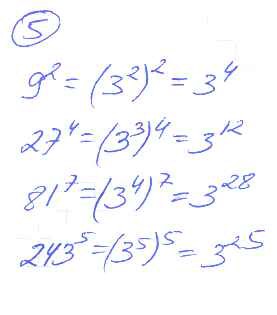 5
9² = (3²)² = 3⁴
27⁴ = (3³)⁴ = 3¹²
81⁷ = (3⁴)⁷ = 3²⁸
243⁵ = (3⁵)⁵ = 3²⁵